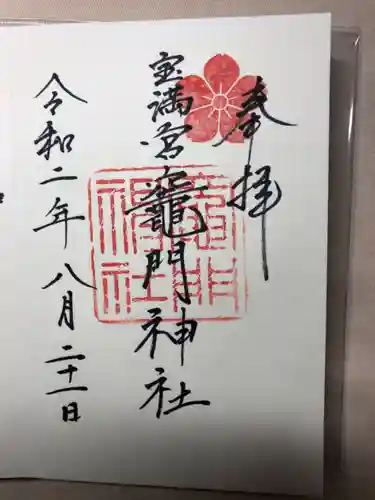 奉拝
宝満宮竈門神社
令和二年八月二十一日